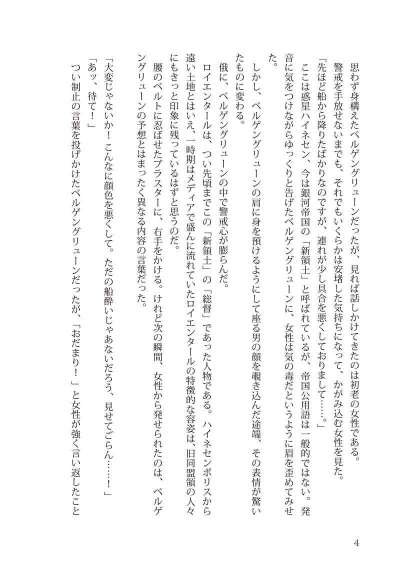 思わず身構えたベルゲングリューンだったが、見れば話しかけてきたのは初老の女性である。
警戒を手放せないまでも、それでもいくらかは安堵した気持ちになって、かがみ込む女性を見た。
「先ほど船から降りたばかりなのですが、連れが少し具合を悪くしておりまして……。」
ここは惑星ハイネセン、今は銀河帝国の「新領土」と呼ばれているが、帝国公用語は一般的ではない。発
音に気をつけながらゆっくりと告げたベルゲングリューンに、女性は気の毒だというように眉を歪めてみせ
た。
しかし、ベルゲングリューンの肩に身を預けるようにして座る男の顔を覗き込んだ途端、その表情が驚い
たものに変わる。
俄に、ベルゲングリューンの中で警戒心が膨らんだ。
ロイエンタールは、つい先頃までこの「新領土」の「総督」であった人物である。ハイネセンポリスから
遠い土地とはいえ、一時期はメディアで盛んに流れていたロイエンタールの特徴的な容姿は、旧同盟領の人々
にもきっと印象に残っているはずと思うのだ。
腰のベルトに忍ばせたブラスターに、右手をかける。けれど次の瞬間、女性から発せられたのは、ベルゲ
ングリューンの予想とはまったく異なる内容の言葉だった。
「大変じゃないか！こんなに顔色を悪くして。ただの船酔いじゃあないだろう、見せてごらん……！」
「あッ、待て！」
つい制止の言葉を投げかけたベルゲングリューンだったが、「おだまり！」と女性が強く言い返したこと
4